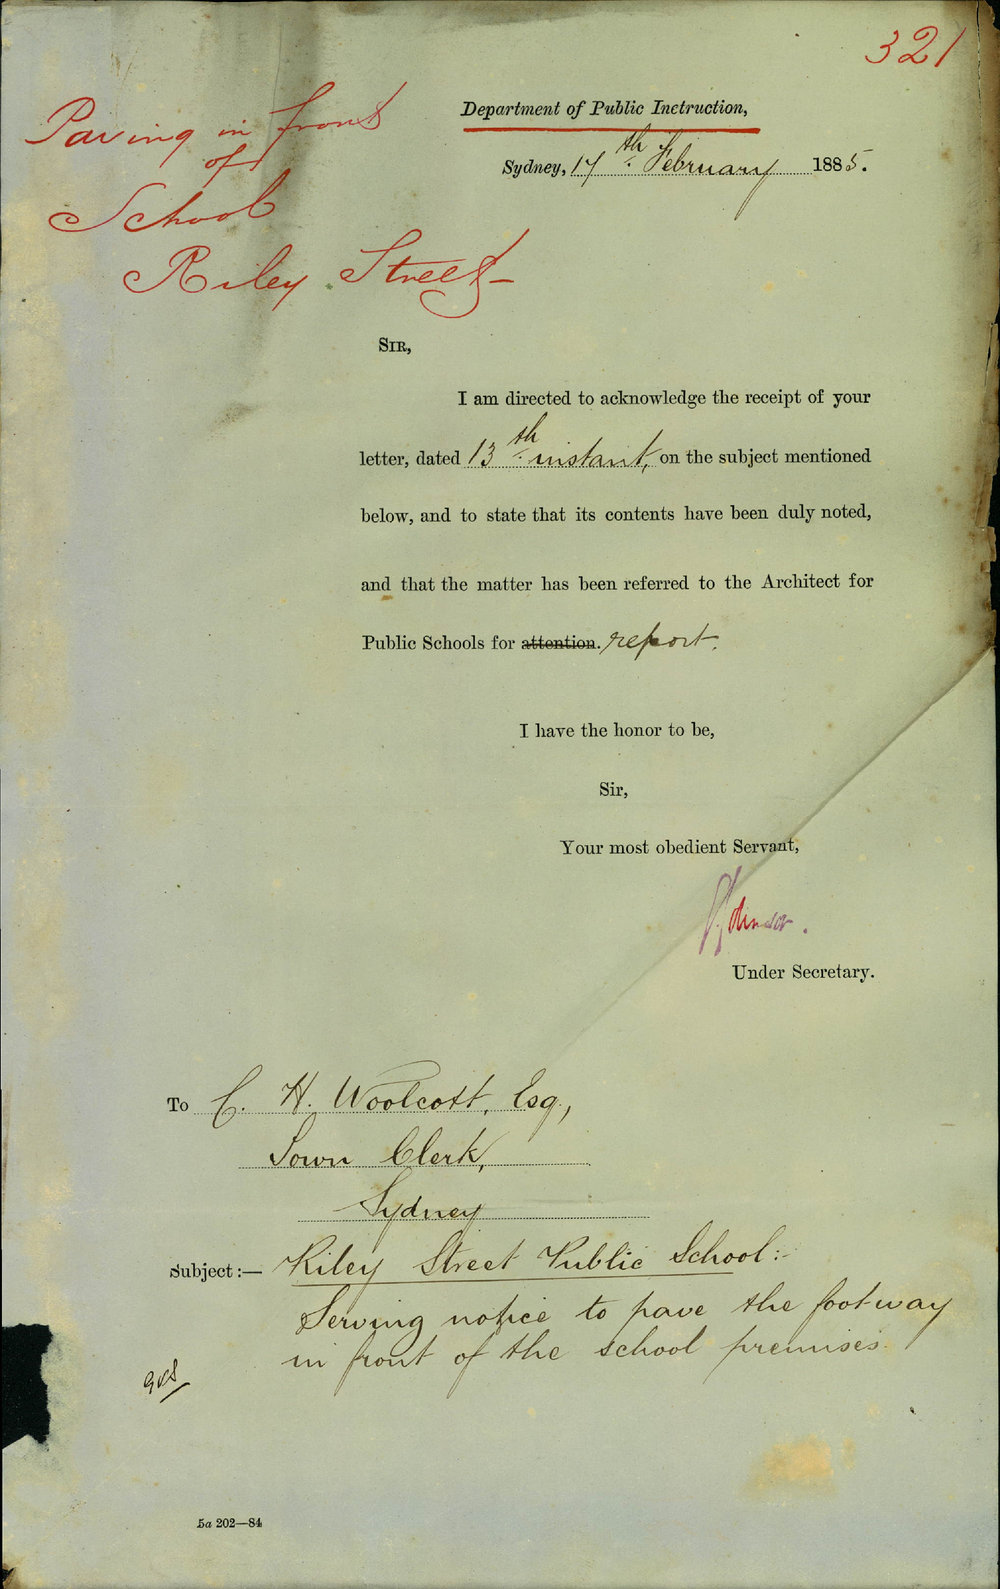 321
Paving in front
of
School
Riley Street
Department of Public Instruction,
Sydney, 17th February 1885.
SIR,
I am directed to acknowledge the receipt of your
letter, dated 13th instant, on the subject mentioned
below, and to state that its contents have been duly noted,
and that the matter has been referred to the Architect for
Public Schools for attention. report.
I have the honor to be,
Sir,
Your most obedient Servant,
Under Secretary.
To C. H. Woolcott, Esq.,
Town Clerk,
Sydney
Subject:— Riley Street Public School:-
Serving notice to pave the footway
in front of the school premises.
5a 202—84